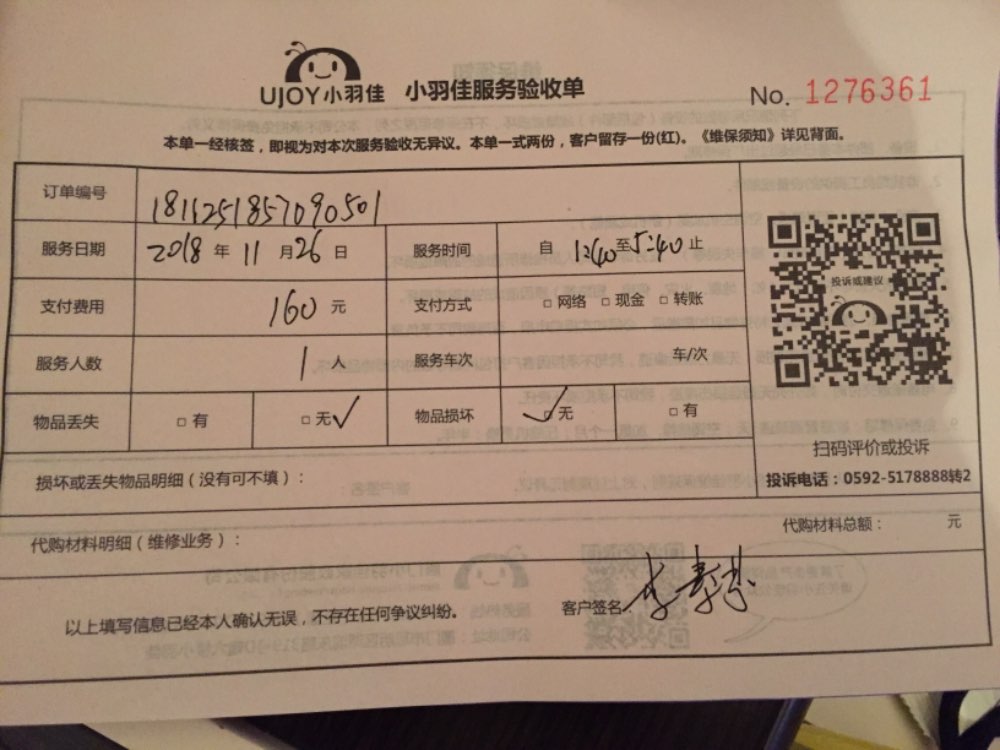 UJOY小羽佳 小羽佳服务验收单 No. 1276361
本单一经核签，即视为对本次服务验收无异议。本单一式两份，客户留存一份(红)。《维保须知》详见背面。
订单编号 1811251857090501
服务日期 2018 年 11 月 26 日 服务时间 自 1:40 至 5:40 止
支付费用 160 元 支付方式 □ 网络 □ 现金 □ 转账
投诉或建议
服务人数 1 人 服务车次 车/次
物品丢失 □ 有 □ 无 ✓ 物品损坏 ✓ □ 无 □ 有
扫码评价或投诉
损坏或丢失物品明细（没有可不填）：
投诉电话：0592-5178888转2
代购材料明细（维修业务）： 代购材料总额： 元
以上填写信息已经本人确认无误，不存在任何争议纠纷。 客户签名